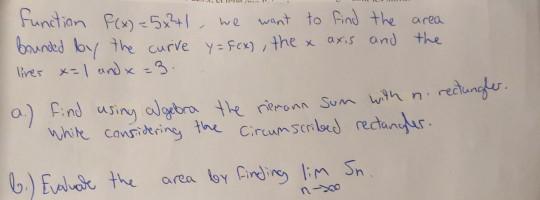 Function F(x) = 5x²+1, we want to find the area
bounded by the curve y = F(x), the x axis and the
lines x=1 and x = 3.
a.) Find using algebra the riemann sum with n. rectangles.
While considering the Circumscribed rectangles.
b.) Evaluate the area by finding lim Sn.
n→∞